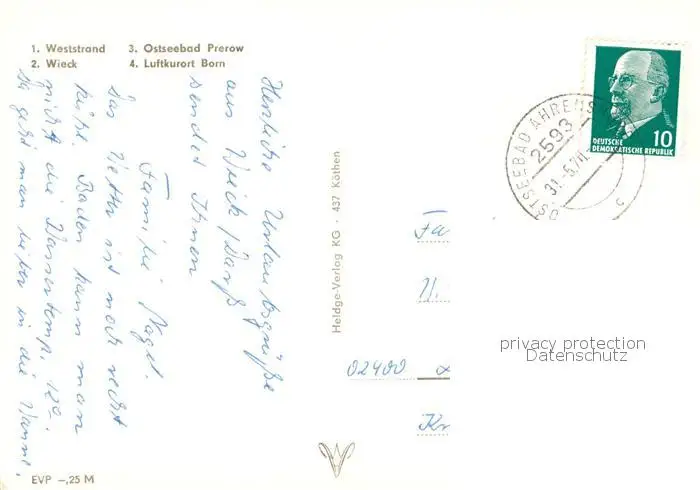 1. Weststrand 3. Ostseebad Prerow
2. Wieck 4. Luftkurort Born
Herzliche Urlaubsgrüße
aus Wieck/Darß
sendet Ihnen
Familie Nagel.
Das Wetter ist noch recht
kühl. Baden kann man
nicht die Wassertemp. 12°.
Da geht man lieber in die Wanne.
EVP –,25 M
Heldge-Verlag KG · 437 Köthen
DEUTSCHE
DEMOKRATISCHE REPUBLIK
10
OSTSEEBAD AHRENS
2593
31.-5.70
c
Fa
02400
Kr
privacy protection
Datenschutz